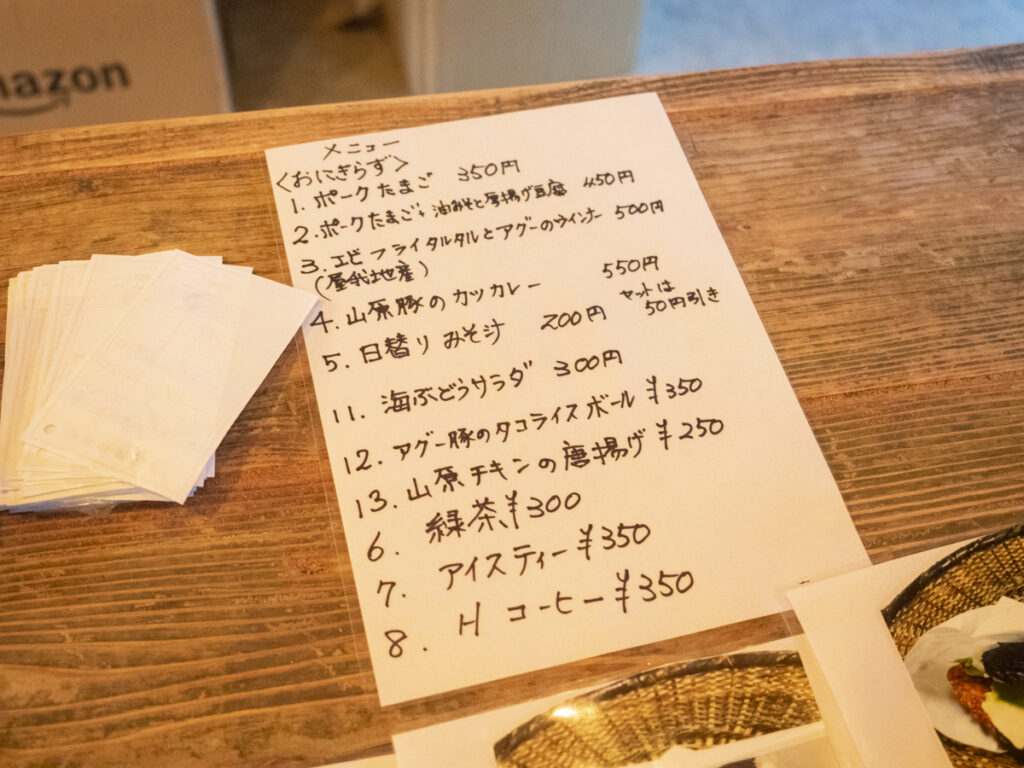 mazon
メニュー
〈おにぎらず〉
1. ポークたまご 350円
2. ポークたまご+油みそと厚揚げ豆腐 450円
3. エビフライタルタルとアグーのウインナー 500円
(屋我地産)
4. 山原豚のカツカレー 550円
5. 日替りみそ汁 200円 セットは
50円引き
11. 海ぶどうサラダ 300円
12. アグー豚のタコライスボール ¥350
13. 山原チキンの唐揚げ ¥250
6. 緑茶 ¥300
7. アイスティー ¥350
8. H コーヒー ¥350